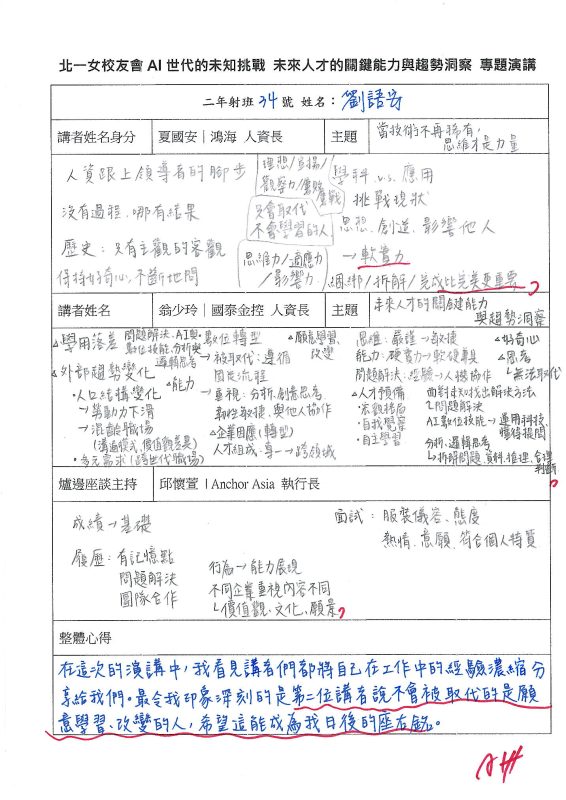 北一女校友會 AI 世代的未知挑戰 未來人才的關鍵能力與趨勢洞察 專題演講
二年射班 34 號 姓名：劉語安
講者姓名身分 夏國安｜鴻海 人資長 主題 當技術不再稀有，思維才是力量
人資跟上領導者的腳步
沒有過程，哪有結果
歷史：只有主觀的客觀
保持好奇心、不斷地問
觀察力
只會取代
不會學習的人
思維力/適應力
/影響力
學科 v.s. 應用
挑戰現狀
思想、創造、影響他人
→軟實力
綑綁/拆解/完成比完美更重要
講者姓名 翁少玲｜國泰金控 人資長 主題 未來人才的關鍵能力與趨勢洞察
△學用落差 問題解決、AI與數位技能、分析與邏輯思考
△外部趨勢變化
・人口結構變化
→勞動力下滑
→混齡職場
(溝通模式、價值觀差異)
・多元需求(跨世代職場)
△數位轉型
→被取代：遵循固定流程
△能力
→重視：分析、創意思考
韌性敏捷、與他人協作
△企業因應(轉型)
人才組成：專→跨領域
△願意學習、改變
思維：嚴謹→敏捷
能力：硬實力→軟硬兼具
問題解決：經驗→人機協作
△人才預備
・宏觀格局
・自我覺察
・自主學習
面對缺口找出解決方法
問題解決
AI數位技能→運用科技、懂得提問
分析、邏輯思考
↳拆解問題、資料、推理、合理判斷
△好奇心
△思考
↳無法取代
爐邊座談主持 邱懷萱｜Anchor Asia 執行長
成績→基礎
履歷：有記憶點
問題解決
團隊合作
行為→能力展現
不同企業重視內容不同
↳價值觀、文化、願景
面試：服裝儀容、態度
熱情、意願、符合個人特質
整體心得
在這次的演講中，我看見講者們都將自己在工作中的經驗濃縮分
享給我們。最令我印象深刻的是第二位講者說不會被取代的是願
意學習、改變的人，希望這能成為我日後的座右銘。